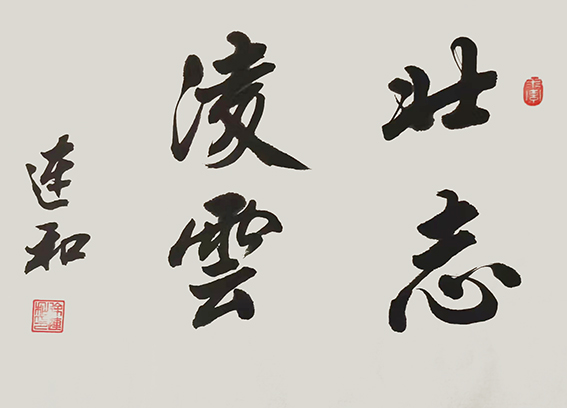 壮志
凌雲
连和